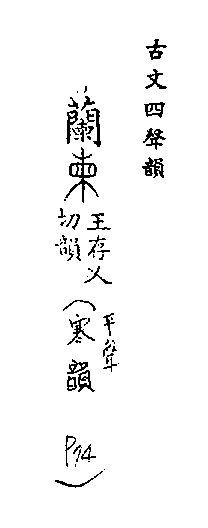 古文四聲韻
蘭𣐺王存乂切韻(平聲寒韻 P74)